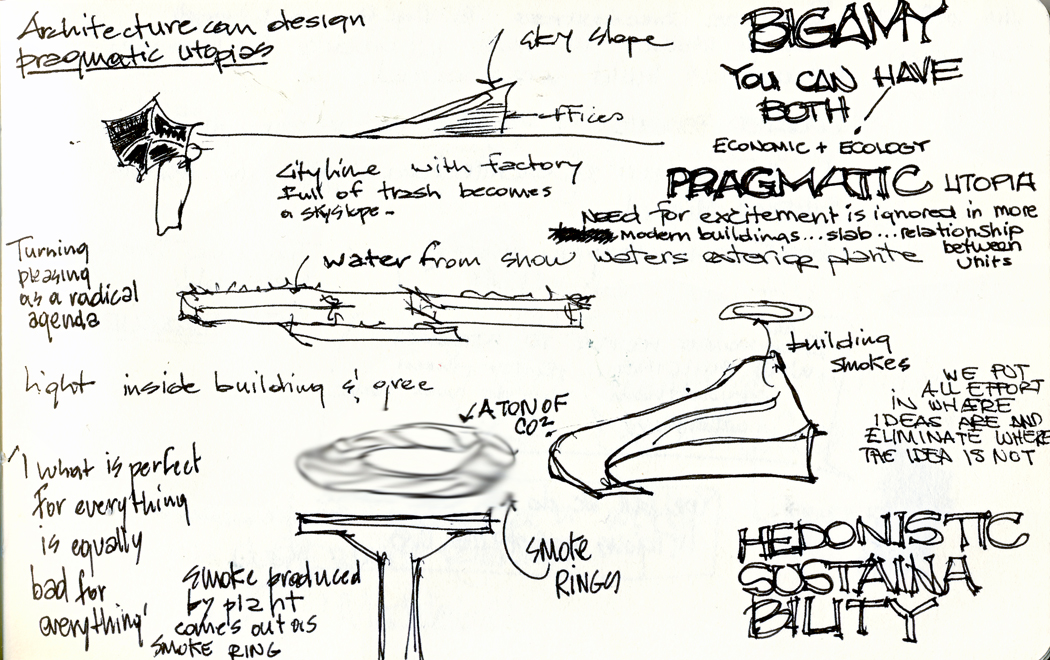 Architecture can design
pragmatic utopias
sky slope
offices
cityline with factory
full of trash becomes
a skyslope-
BIGAMY
YOU CAN HAVE
BOTH!
ECONOMIC + ECOLOGY
PRAGMATIC UTOPIA
NEED for excitement is ignored in more
modern buildings...slab...relationship
between
units
Turning
pleasing
as a radical
agenda
water from snow waters exterior plante
Light inside building &
building
smokes
WE PUT
ALL EFFORT
IN WHERE
IDEAS ARE AND
ELIMINATE WHERE
THE IDEA IS NOT
A TON OF
CO2
'what is perfect
for everything
is equally
bad for
everything'
smoke produced
by plant
comes out as
SMOKE RING
SMOKE
RINGS
HEDONISTIC
SUSTAINA
BILITY